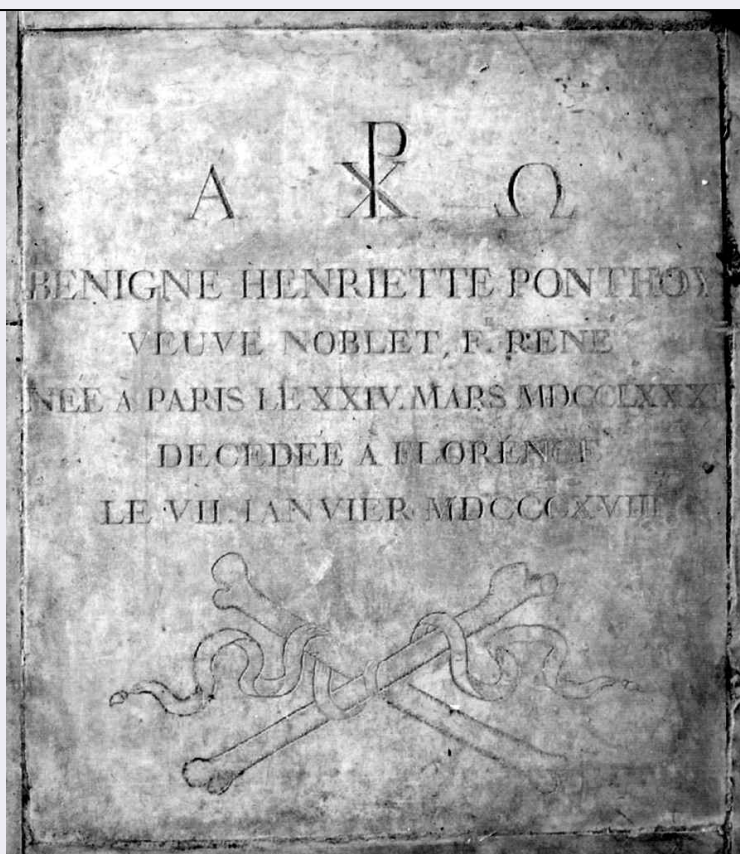 Α ☧ Ω
BENIGNE HENRIETTE PONTHOY
VEUVE NOBLET, F. RENÉ
NÉE A PARIS LE XXIV. MARS
DECEDÉE A FLORENCE
LE VII. IANVIER MDCCCXVIII